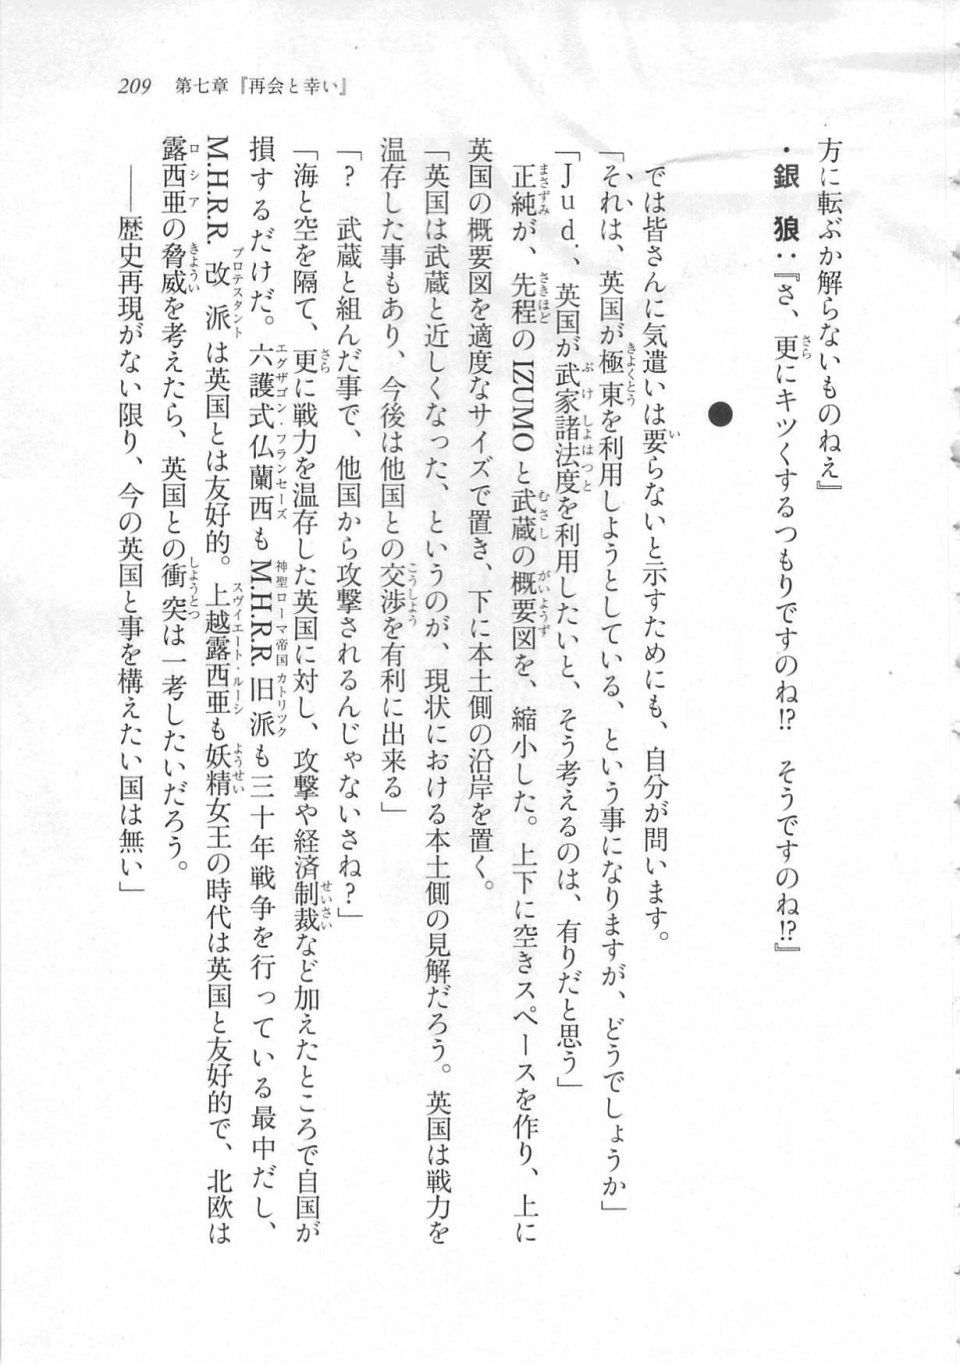 209　第七章『再会と幸い』
方に転ぶか解らないものねえ』
・銀　狼：『さ、更にキツくするつもりですのね!?　そうですのね!?』
●
では皆さんに気遣いは要らないと示すためにも、自分が問います。
「それは、英国が極東を利用しようとしている、という事になりますが、どうでしょうか」
「Jud.、英国が武家諸法度を利用したいと、そう考えるのは、有りだと思う」
正純が、先程のIZUMOと武蔵の概要図を、縮小した。上下に空きスペースを作り、上に
英国の概要図を適度なサイズで置き、下に本土側の沿岸を置く。
「英国は武蔵と近しくなった、というのが、現状における本土側の見解だろう。英国は戦力を
温存した事もあり、今後は他国との交渉を有利に出来る」
「?　武蔵と組んだ事で、他国から攻撃されるんじゃないさね?」
「海と空を隔て、更に戦力を温存した英国に対し、攻撃や経済制裁など加えたところで自国が
損するだけだ。六護式仏蘭西もM.H.R.R.旧派も三十年戦争を行っている最中だし、
M.H.R.R.改派は英国とは友好的。上越露西亜も妖精女王の時代は英国と友好的で、北欧は
露西亜の脅威を考えたら、英国との衝突は一考したいだろう。
――歴史再現がない限り、今の英国と事を構えたい国は無い」